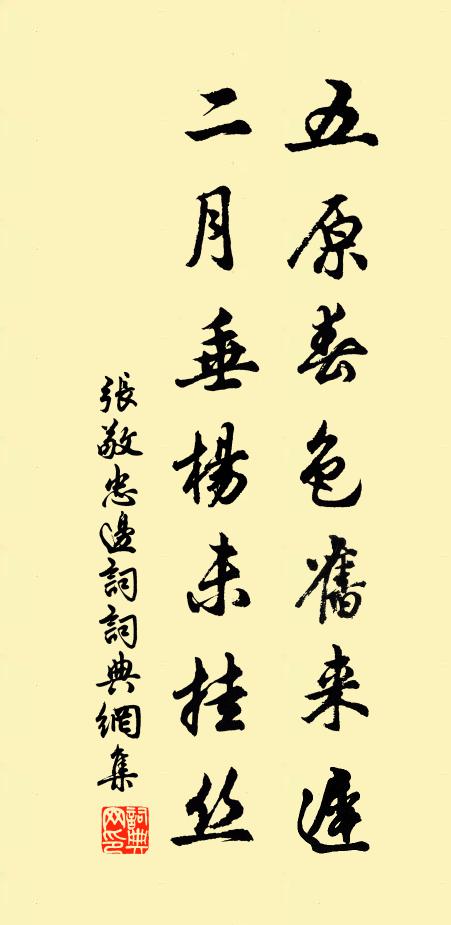 五原春色舊来遲
二月垂楊未挂丝
張敬忠邊詞詞典網集
詞典网印